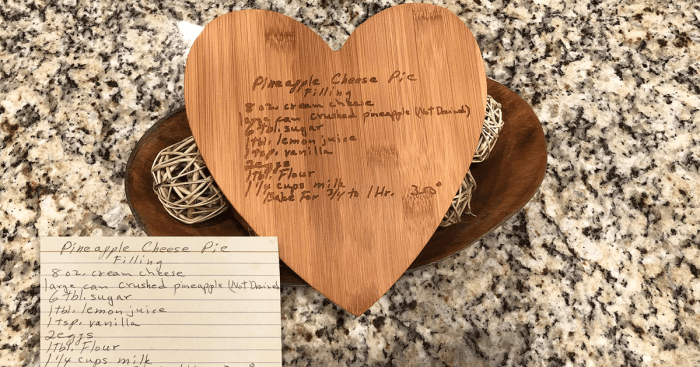 Pineapple Cheese Pie
Filling
8 oz. cream cheese
large can crushed pineapple (Not Drained)
6 tbl. sugar
1 tbl. lemon juice
1 tsp. vanilla
2 eggs
1 tbl. Flour
1 1/4 cups milk
Bake For 3/4 to 1 Hr. 350°
Pineapple Cheese Pie
Filling
8 oz. cream cheese
large can crushed pineapple (Not Drained)
6 tbl. sugar
1 tbl. lemon juice
1 tsp. vanilla
2 eggs
1 tbl. Flour
1 1/4 cups milk